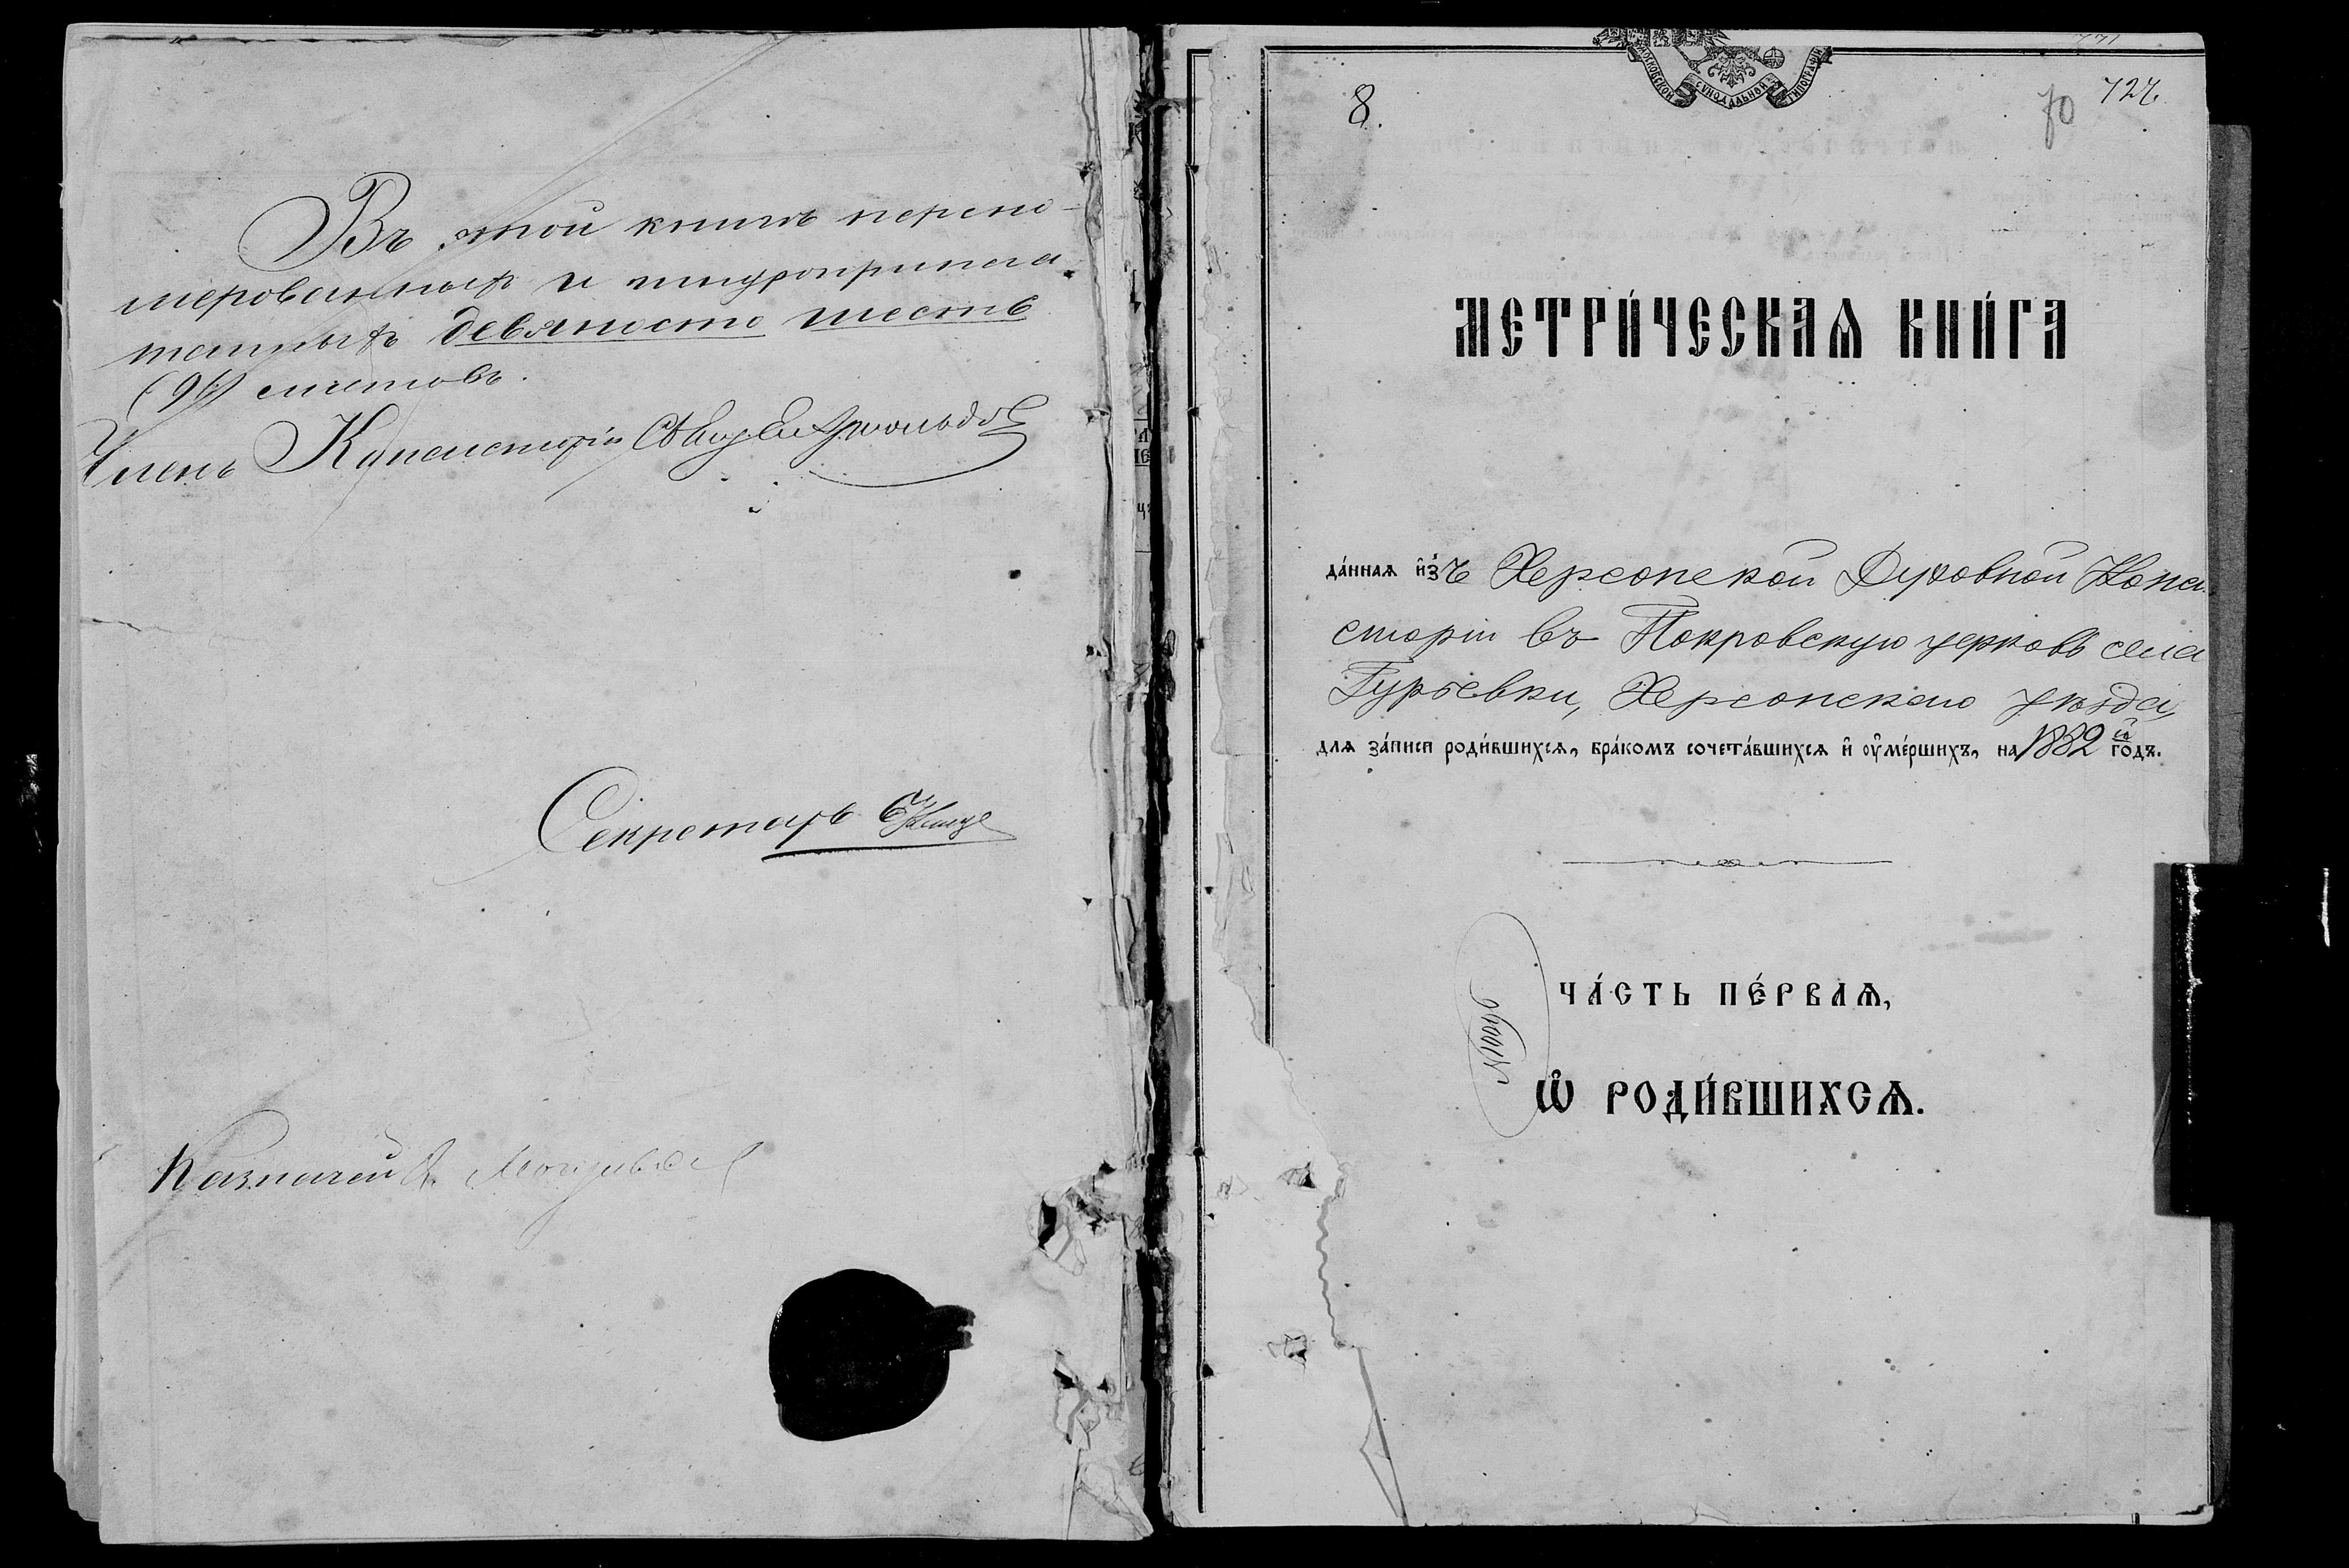 Въ этой книгѣ перену-
мерованныхъ и шнуроприпеча
танныхъ девяносто шесть
(96) листовъ.
Членъ Консисторіи
Секретарь
Казначей
8.
70
724.
МОСКОВСКОЙ СѴНОДАЛЬНОЙ ТИПОГРАФІИ
МЕТРИ́ЧЕСКАѦ КНИ́ГА
да́ннаѧ и҆зъ Херсонской Духовной Конси
сторіи въ Покровскую церковь села
Гурьевки, Херсонскаго уѣзда,
длѧ за́писи роди́вшихсѧ, бра́комъ сочета́вшихсѧ и҆ ᲂу҆ме́ршихъ, на 1882 го́дъ.
ЧА́СТЬ ПЕ́РВАѦ,
Ѡ҆ РОДИ́ВШИХСѦ.